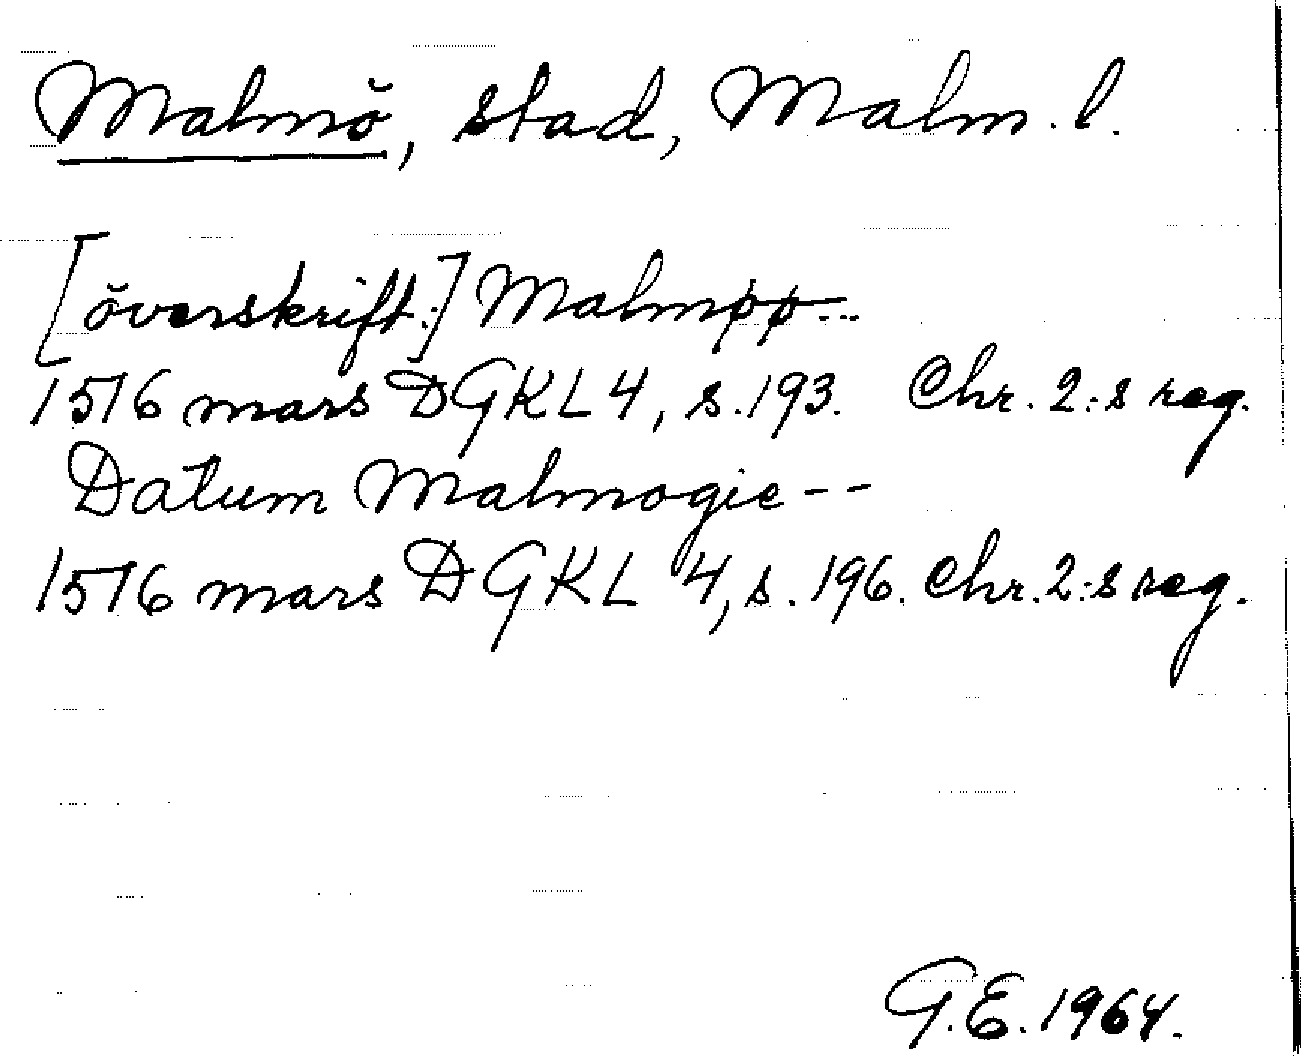 Malmö, stad, Malm. l.
[överskift:] Malmøø--
1516 mars DGKL 4, s. 193. Chr. 2:s reg.
Datum Malmogie--
1516 mars DGKL 4, s. 196. Chr. 2:s reg.
G.E. 1964.